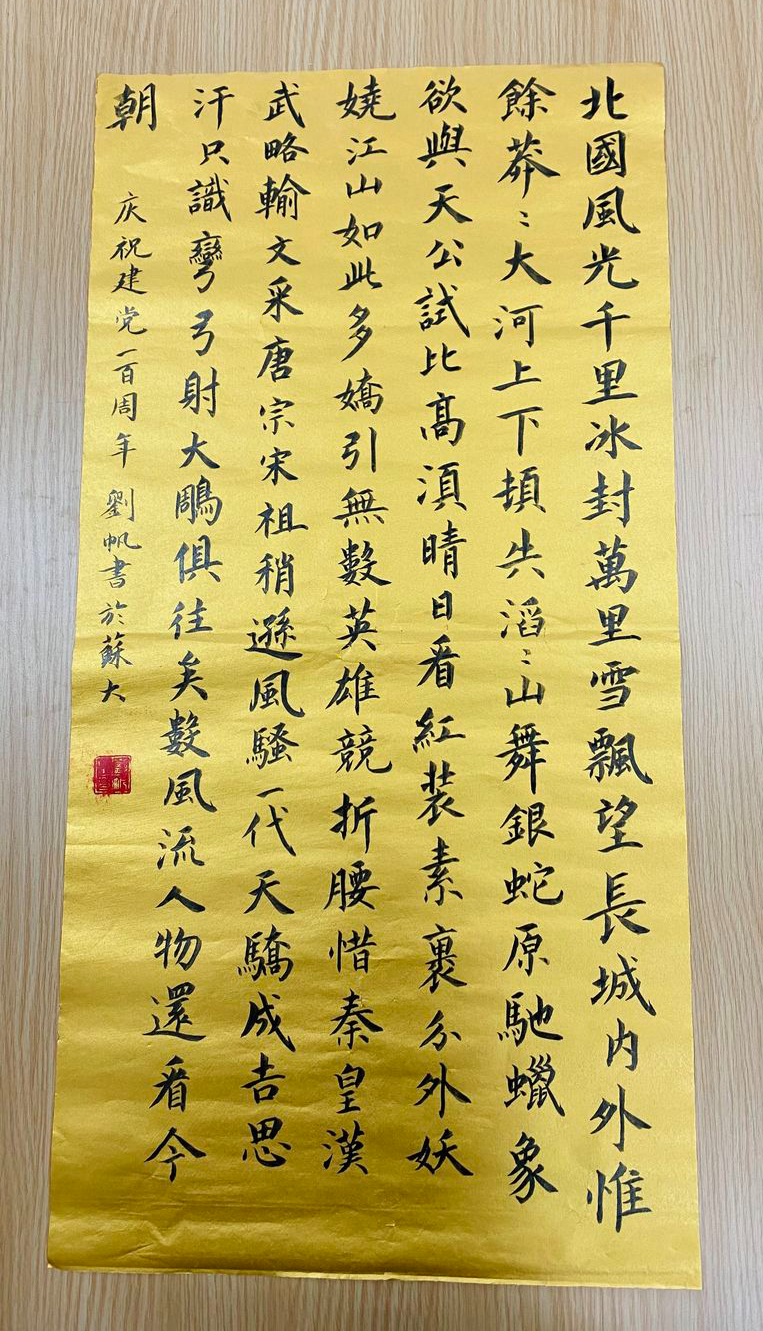 北國風光千里冰封萬里雪飄望長城内外惟
餘莽〻大河上下頓失滔〻山舞銀蛇原馳蠟象
欲與天公試比髙湏晴日看紅裝素裹分外妖
嬈江山如此多嬌引無數英雄競折腰惜秦皇漢
武略輸文采唐宗宋祖稍遜風騷一代天驕成吉思
汗只識彎弓射大鵰俱往矣數風流人物還看今
朝
庆祝建党一百周年 劉帆書於蘇大